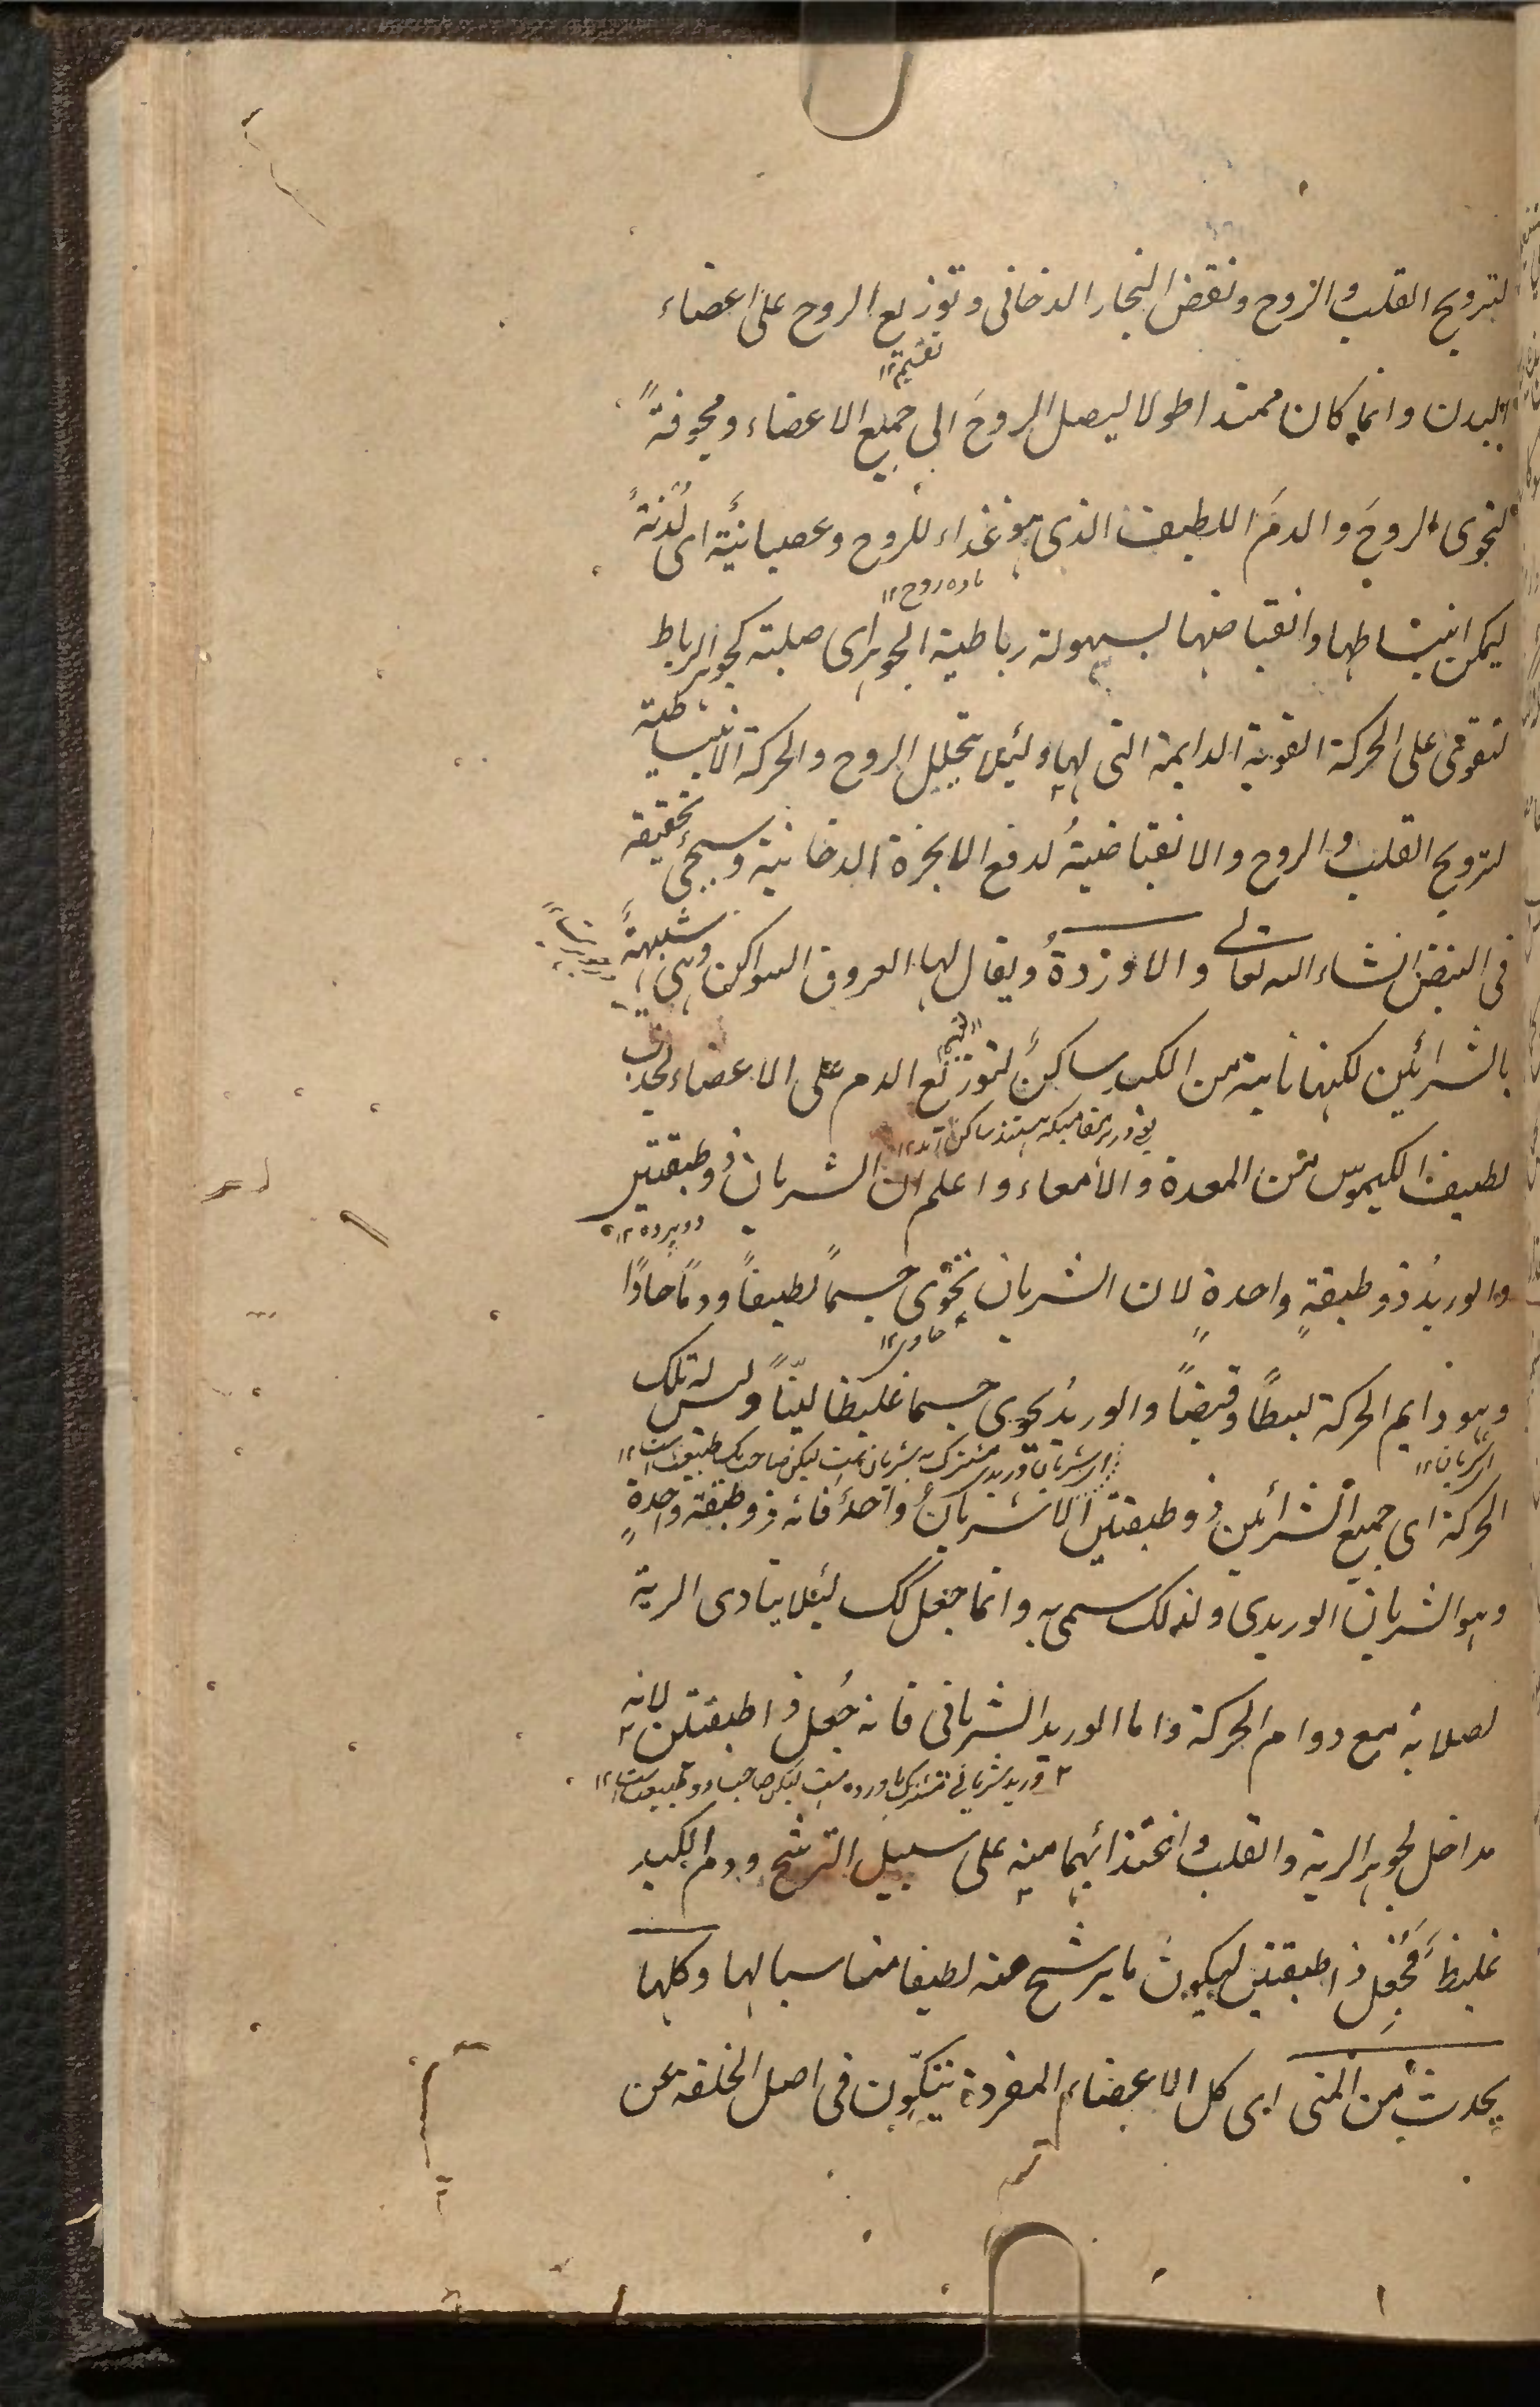 لترويح القلب والروح ونفض البخار الدخانى وتوزيع الروح على اعضاء
تقسيم ١٢
البدن وانما كان ممتدا طولا ليصل الروحَ الى جميع الاعضاء ومجوفةً
لتحوى الروحَ والدمَ اللطيف الذى هو غذاء للروح وعصبانيّة اى لُدْنةً
ماده روح ١٢
ليمكن انبساطها وانقباضها بسهولة رباطية الجوهر اى صلبة كجوهر الرباط
لتقوى على الحركة القوية الدايمة التى لها ولئلا يتحلل الروح والحركة الانبساطية
لترويح القلب والروح والانقباضيةُ لدفع الابخرة الدخانية وسيجئ تحقيقه
فى النبض انشاء الله تعالى والاوردةُ ويقال لها العروق السواكن وهى شبيهةً
بالشرائين لكنها نابتة من الكبد ساكنً لتوزيع الدم على الاعضاء لجذب
يعنى در هر مقاميكه هستند ساكن اند ١٢
لطيف الكيموس من المعدة والامعاء واعلم ان الشريان ذو طبقتين
دو پرده ١٢
والوريدُ ذو طبقةٍ واحدةٍ لان الشريان تحوى جسماً لطيفاً ودمًا حادًا
حاوى ١٢
وهو دايم الحركة لبسطًا وقبضًا والوريدُ يحوى جسما غليظا ليّنًا وليس له تلك
الشريان ١٢
الحركة اى جميع الشرائين ذو طبقتين الا شريانٌ واحدً فانه ذو طبقة واحدةٍ
وهو الشريان الوريدى ولذلك سمى به وانما جعل كك لئلا يتادى الرية
لصلابة مع دوام الحركة واما الوريد الشريانى فانه جُعل ذا طبقتين لانه
مداخل لجوهر الرية والقلب واغتذائهما منه على سبيل الترشح ودم الكبد
غليظَ فَجُعِل ذا طبقتين ليكون ما يرشح منه لطيفا مناسبا لهما وكلها
يحدث من المنى اى كل الاعضاء المفردة يتكوّن فى اصل الخلقة عن